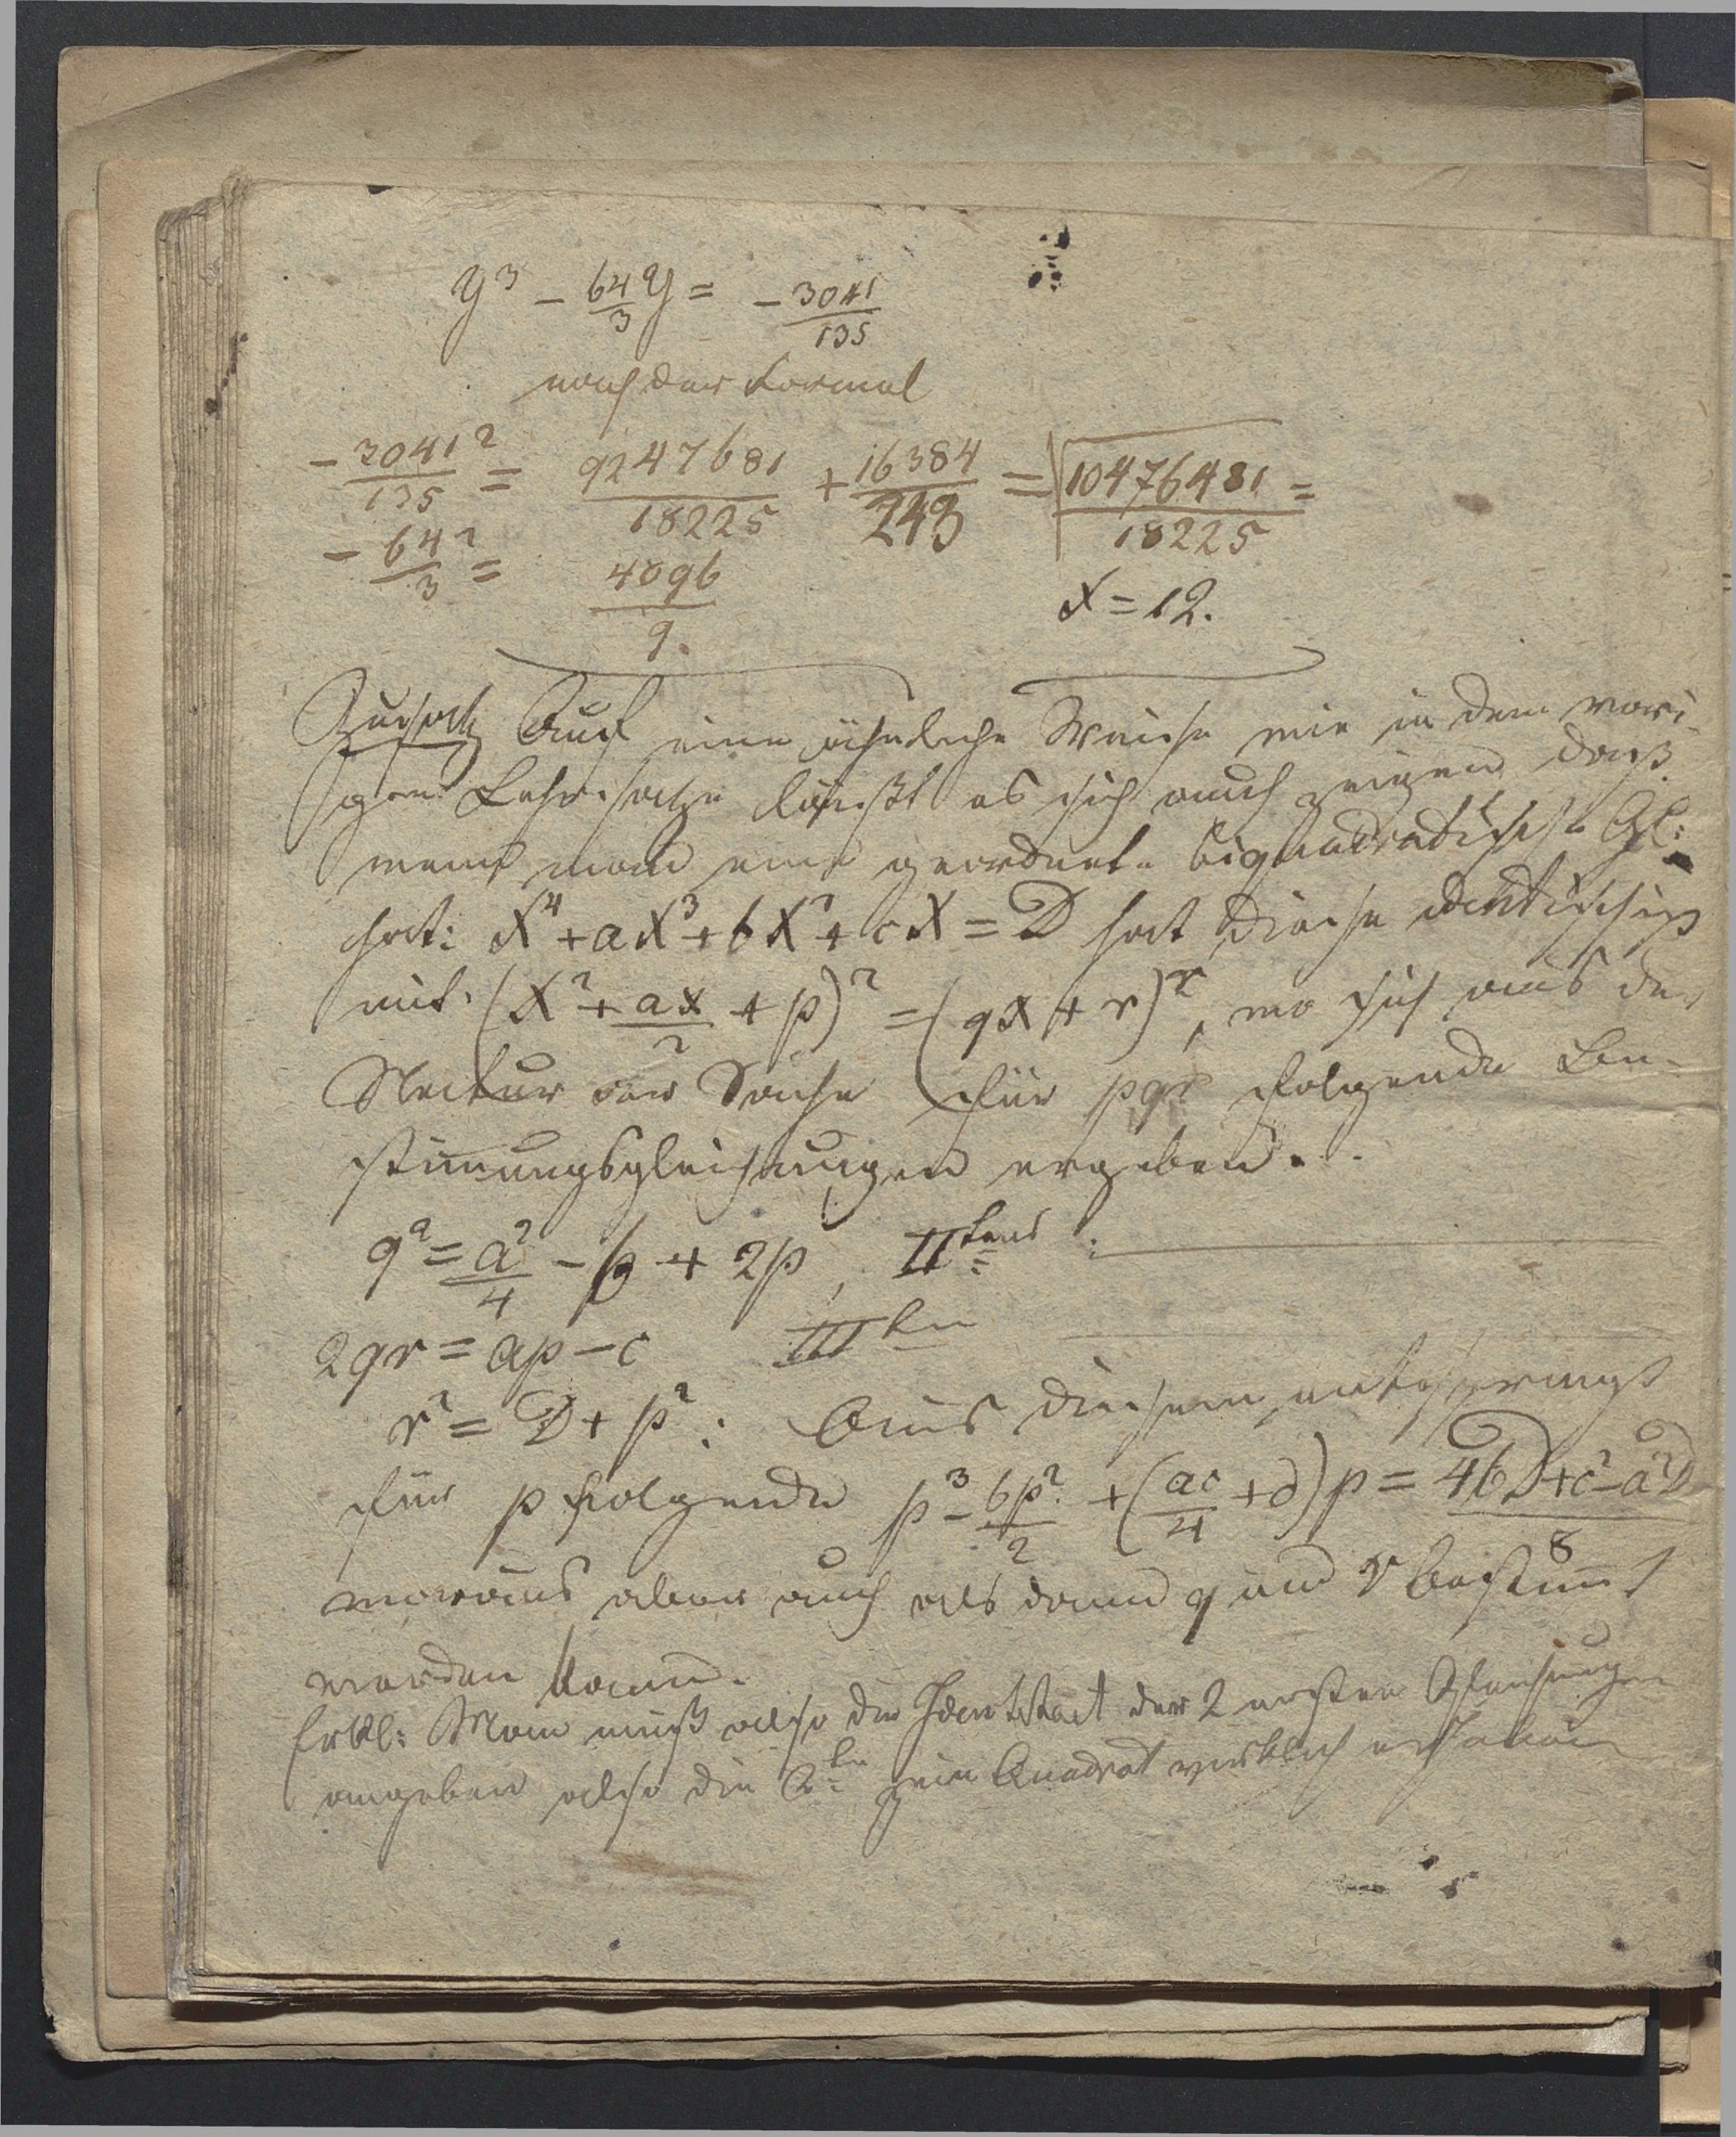 y³ - 64/3 y = - 3041/135
nach der Formel
- 3041²/135 = 9247681/18225 + 16384/243 = √10476481/18225 =
- 64²/3 = 4096/9.
x = 12.
Zusatz Auf eine ähnliche Weise wie in dem vori
gen Lehrsatze läßt es sich auch zeigen daß
wenn man eine geordnete biquadratische Gl:
hat: x⁴ + ax³ + bx² + cx = D hat diese identisch ist
mit (x² + ax/2 + p)² = (qx + r)², wo sich aus der
Natur der Sache für pqr folgende Be-
stimungsgleichungen ergeben.
q² = a²/4 - b + 2p, IItens :
2qr = ap - c IIIten
r² = D + p² : Aus diesem entspringt
für p folgende p³ - bp²/2 + (ac/4 + d) p = 4bD + c² - a²D/8
woraus aber auch als dann q und r bestimt
werden kann.
Erkl: Man muß also die Identität der 2 ersten Gleichungen
angeben also die 2te zum Quadrat wirklich erheben